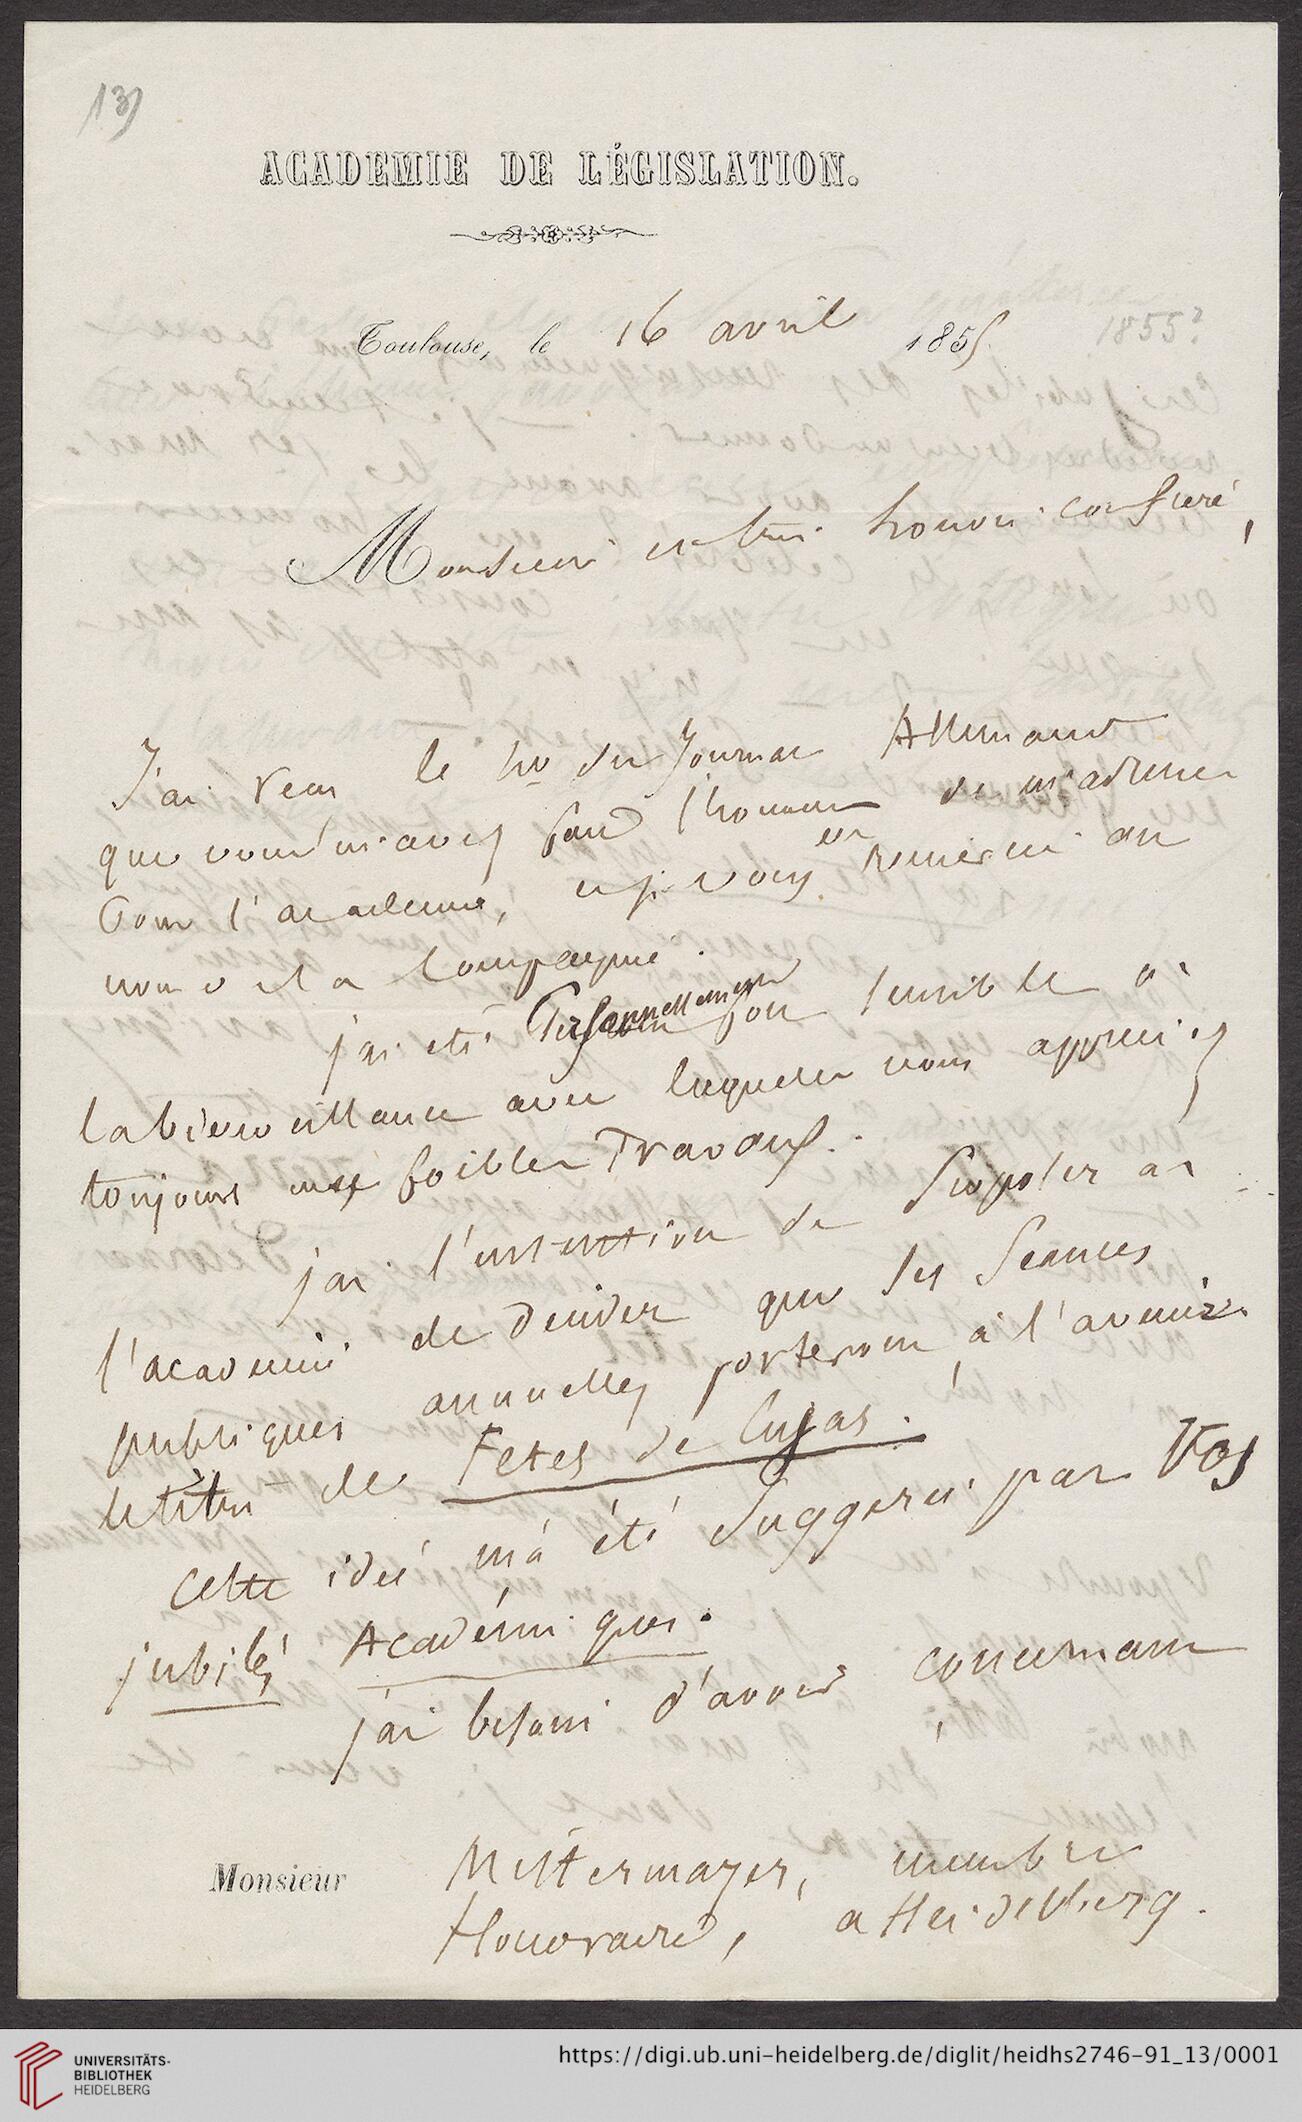 13)
ACADEMIE DE LÉGISLATION.
Toulouse, le 16 avril 1855
1855?
Monsieur et très honoré confrère,
J'ai recu le no du Journal Allemand
que vous m'avez fait l'honneur de m'adresser
Pour l'academie, et je vous en remercie au
nom de la Compagnie.
j'ai été Personnellement fort sensible à
la bienveillance avec laquelle vous appreciez
toujours mes foibles Travaux.
j'ai l'intention de proposer à
l'academie de decider que ses Seances
publiques annuelles porteront à l'avenir
le titre de Fetes de Cujas.
Cette idée m'a été Suggerée par Vos
jubilés Académiques.
j'ai besoin d'avoir, concernant
Monsieur Mittermayer, membre
Honoraire, a Heidelberg.
UNIVERSITÄTS-
BIBLIOTHEK
HEIDELBERG
https://digi.ub.uni-heidelberg.de/diglit/heidhs2746-91_13/0001